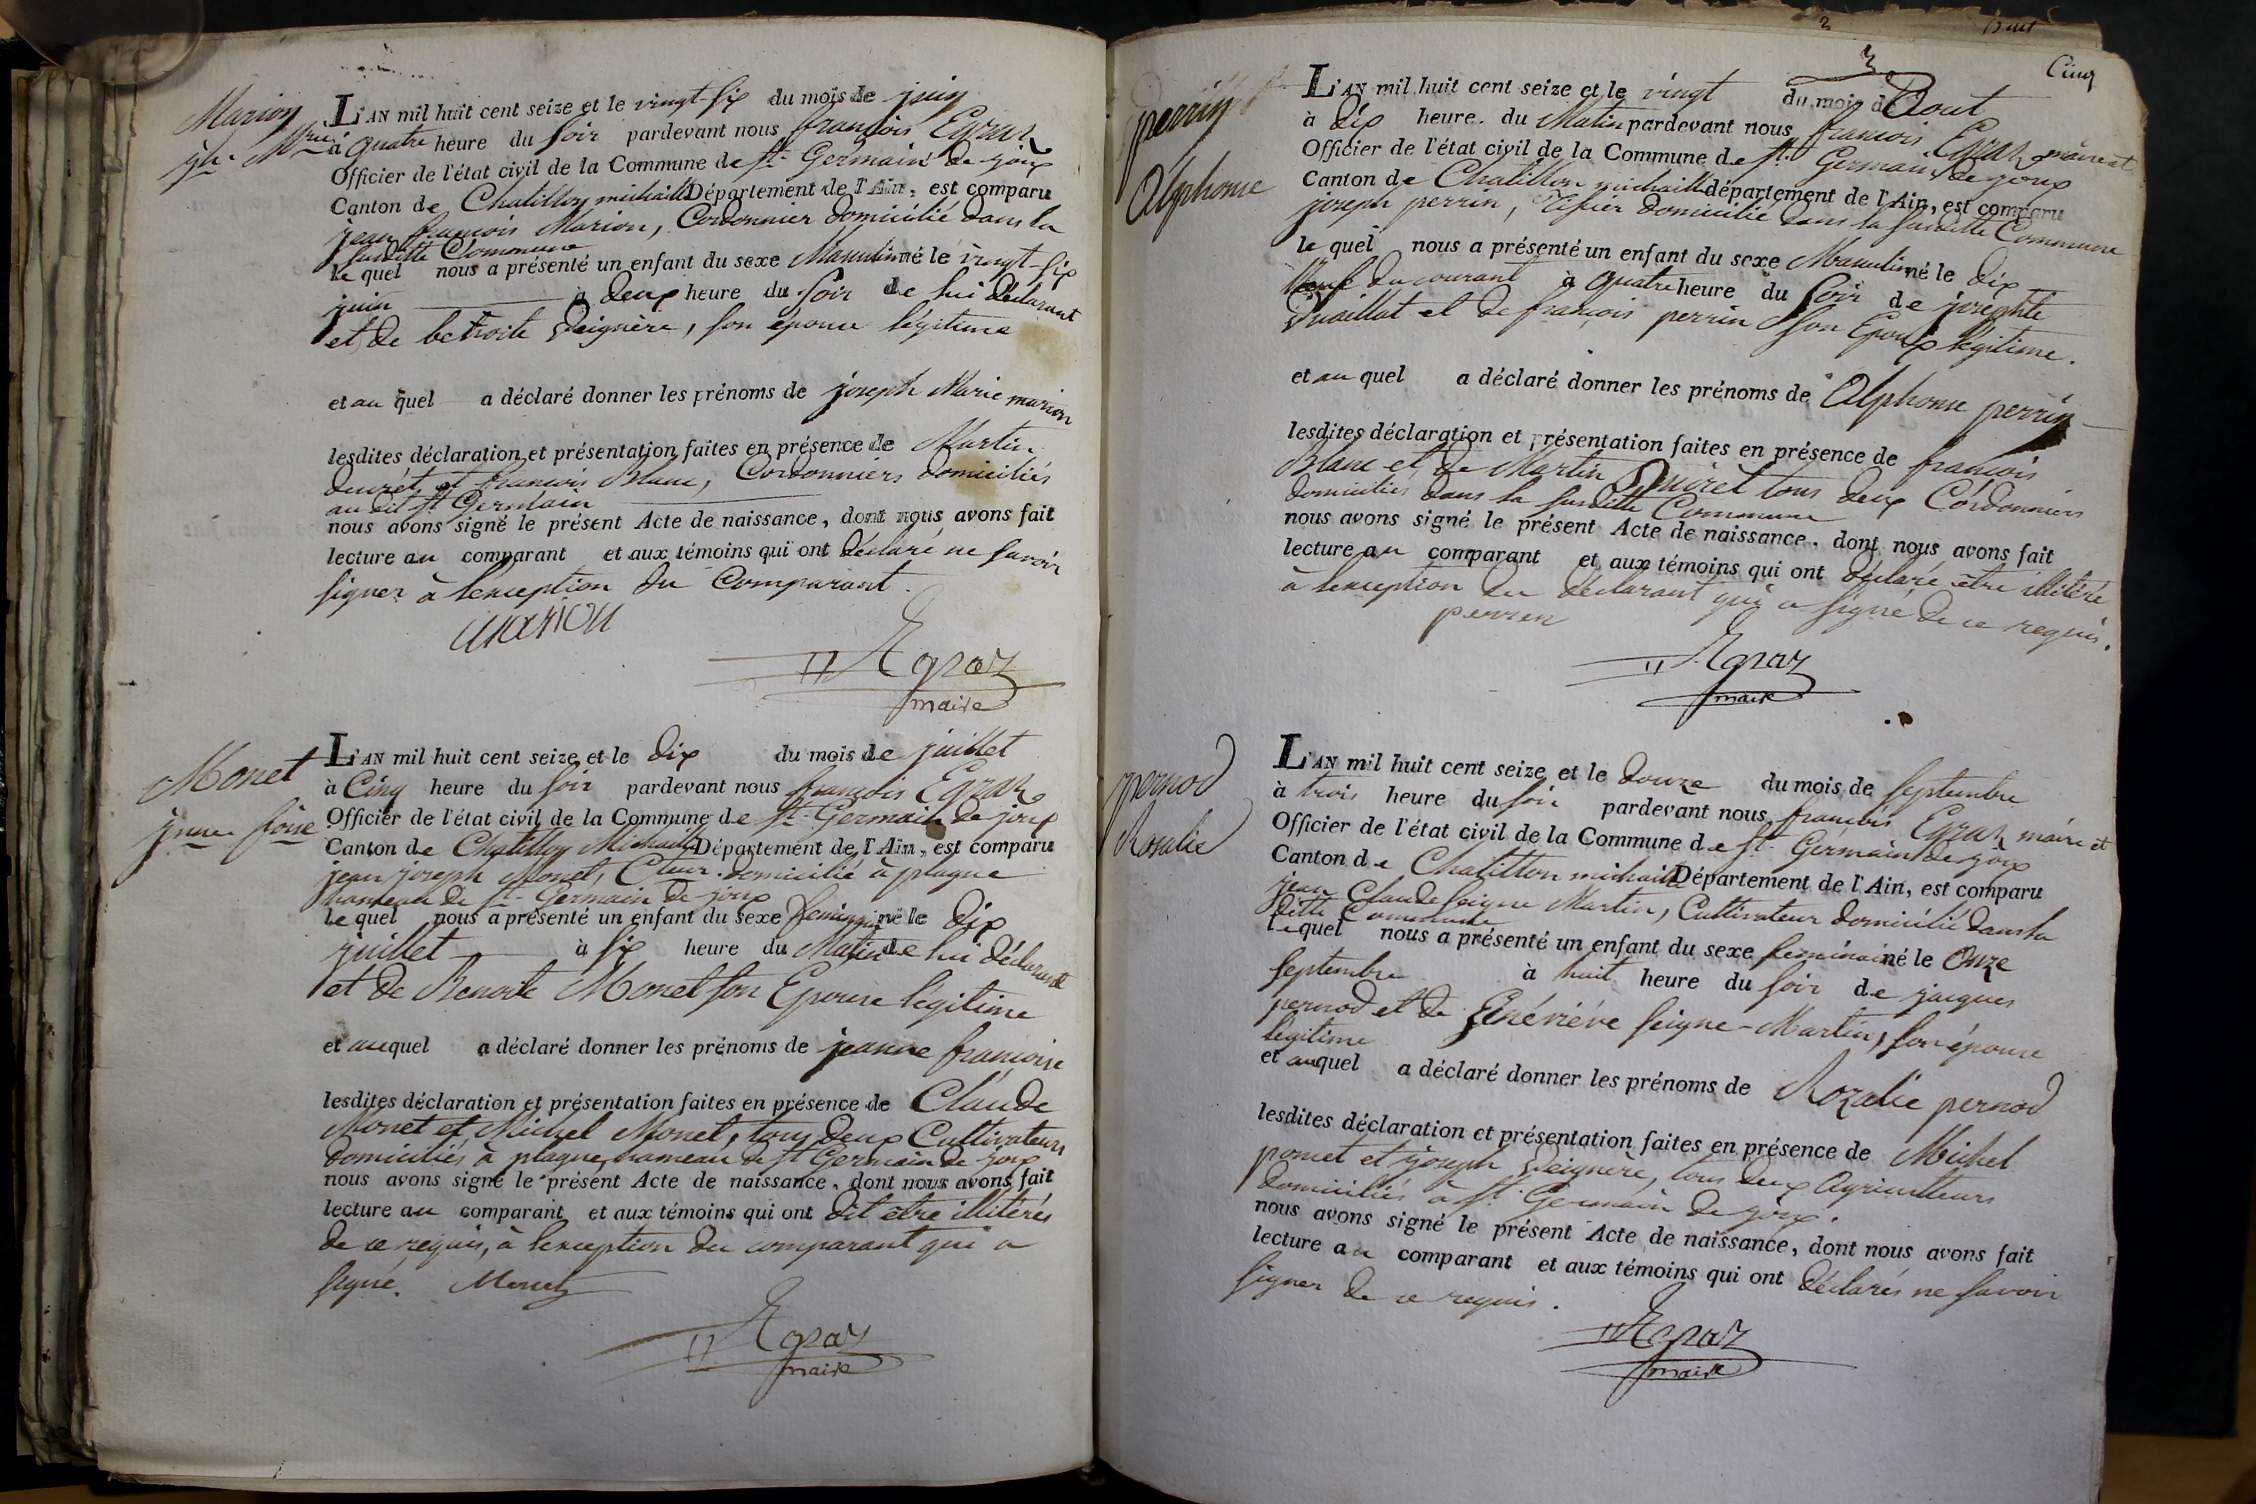 Marion
jh. Mrie
L'AN mil huit cent seize et le vingt-six du mois de juin
à quatre heure du soir pardevant nous françois Egraz
Officier de l'état civil de la Commune de St. Germain de joux
Canton de Chatillon michaille Département de l'Ain, est comparu
jean françois Marion, Cordonnier domicilié dans la
susditte Commune
le quel nous a présenté un enfant du sexe Masculin né le vingt-six
juin à deux heure du soir de lui déclarant
et de Seignère, son épouse légitime
et au quel a déclaré donner les prénoms de joseph Marie marion
lesdites déclaration et présentation faites en présence de Martin
ducrét et francois Blanc, Cordonniers domiciliés
au dit St Germain
nous avons signé le présent Acte de naissance, dont nous avons fait
lecture au comparant et aux témoins qui ont déclaré ne savoir
signer à lexception du Comparant.
marion
Egraz
maire
Monet
jnne. foise
L'AN mil huit cent seize et le dix du mois de juillet
à Cinq heure du soir pardevant nous françois Egraz
Officier de l'état civil de la Commune de St. Germain de joux
Canton de Chatillon Michaille Département de l'Ain, est comparu
jean joseph Monet, Cteur. domicilié à plagne
hameau de St. Germain de joux
le quel nous a présenté un enfant du sexe feminin né le dix
juillet à six heure du Matin de lui déclarant
et de Benoite Monet son Epouse légitime
et auquel a déclaré donner les prénoms de jeanne francoise
lesdites déclaration et présentation faites en présence de Claude
Monet et Michel Monet, tous deux Cultivateurs
domiciliés à plagne, hameau de St Germain de joux
nous avons signé le présent Acte de naissance, dont nous avons fait
lecture au comparant et aux témoins qui ont dit etre illitérés
de ce requis, à lexception du comparant qui a
signé. Monet
Egraz
maire
Cinq
perrin
Alphonse
L'AN mil huit cent seize et le vingt du mois d'Aout
à dix heure. du Matin pardevant nous francois Egraz maire et
Officier de l'état civil de la Commune de St. Germain de joux
Canton de Chatillon michaille département de l'Ain, est comparu
joseph perrin, domicilié dans la susditte Commune
le quel nous a présenté un enfant du sexe Masculin né le dix
Neuf du courant à quatre heure du soir de josephte
et de françois perrin son Epoux légitime.
et au quel a déclaré donner les prénoms de Alphonse perrin
lesdites déclaration et présentation faites en présence de françois
Blanc et de Martin Duiret tous deux Cordonniers
domiciliés dans la susditte Commune
nous avons signé le présent Acte de naissance. dont nous avons fait
lecture au comparant et aux témoins qui ont déclaré être illitéré
à lexception du déclarant qui a signé de ce requis.
perren
Egraz
maire
pernod
Rosalie
L'AN mil huit cent seize et le douze du mois de septembre
à trois heure du soir pardevant nous francois Egraz maire et
Officier de l'état civil de la Commune de St. Germain de joux
Canton de Chatillon michaille Département de l'Ain, est comparu
jean Claude Seigne Martin, Cultivateur domicilié dans la
ditte Commune
lequel nous a présenté un enfant du sexe feminin né le Onze
septembre à huit heure du soir de jacques
pernod et de Généviéve Seigne-Martin, son épouse
légitime
et auquel a déclaré donner les prénoms de Rozalie pernod
lesdites déclaration et présentation faites en présence de Michel
poncet et joseph Seignere, tous deux Agriculteurs
domiciliés à St. Germain de joux.
nous avons signé le présent Acte de naissance, dont nous avons fait
lecture au comparant et aux témoins qui ont déclarés ne savoir
signer de ce requis.
Egraz
maire